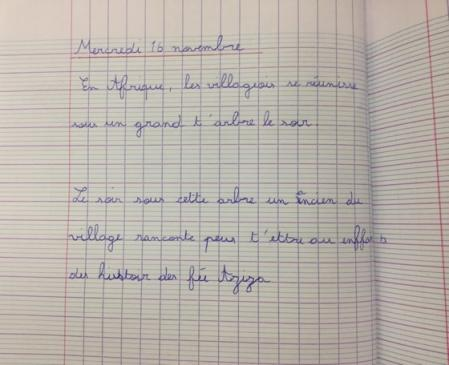 Mercredi 16 novembre
En Afrique, les villageois se réunisse
sous un grand t'arbre le soir.
Le soir sous cette arbre un Encien du
village raconte peus t'ettre au enffants
des hustoir des fée Aziza